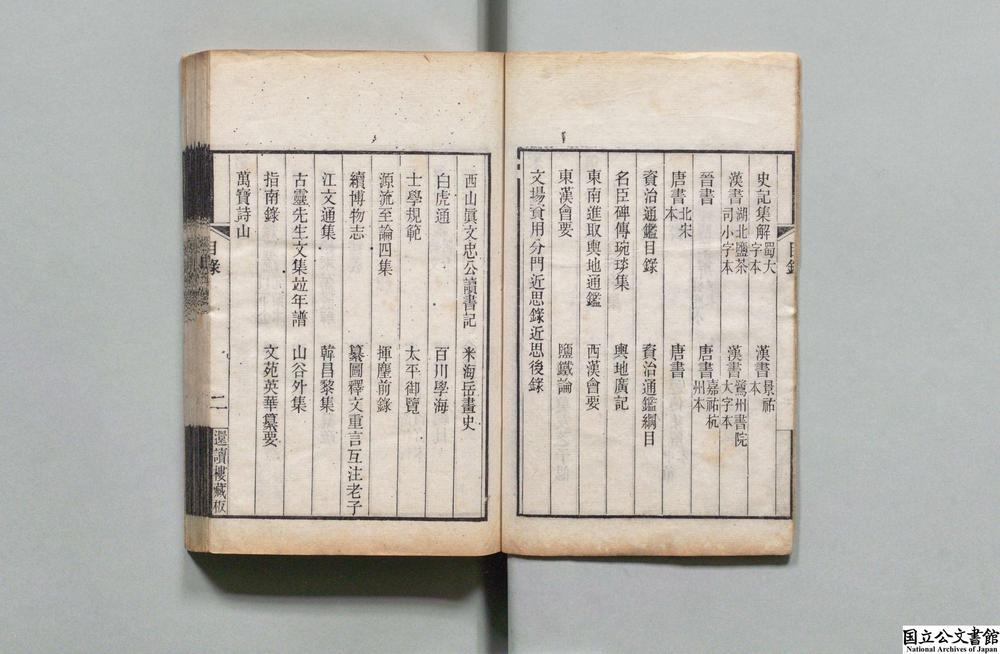 史記集解蜀大字本　漢書景祐本
漢書湖北鹽茶司小字本　漢書鷺州書院大字本
晉書　唐書嘉祐杭州本
唐書北宋本　唐書
資治通鑑目錄　資治通鑑綱目
名臣碑傳琬琰集　輿地廣記
東南進取輿地通鑑　西漢會要
東漢會要　鹽鐵論
文場資用分門近思錄近思後錄
目錄
西山眞文忠公讀書記　米海岳畫史
白虎通　百川學海
士學規範　太平御覽
源流至論四集　揮麈前錄
續博物志　纂圖釋文重言互注老子
江文通集　韓昌黎集
古靈先生文集竝年譜　山谷外集
指南錄　文苑英華纂要
萬寶詩山
目錄　二　還讀樓藏板
国立公文書館
National Archives of Japan